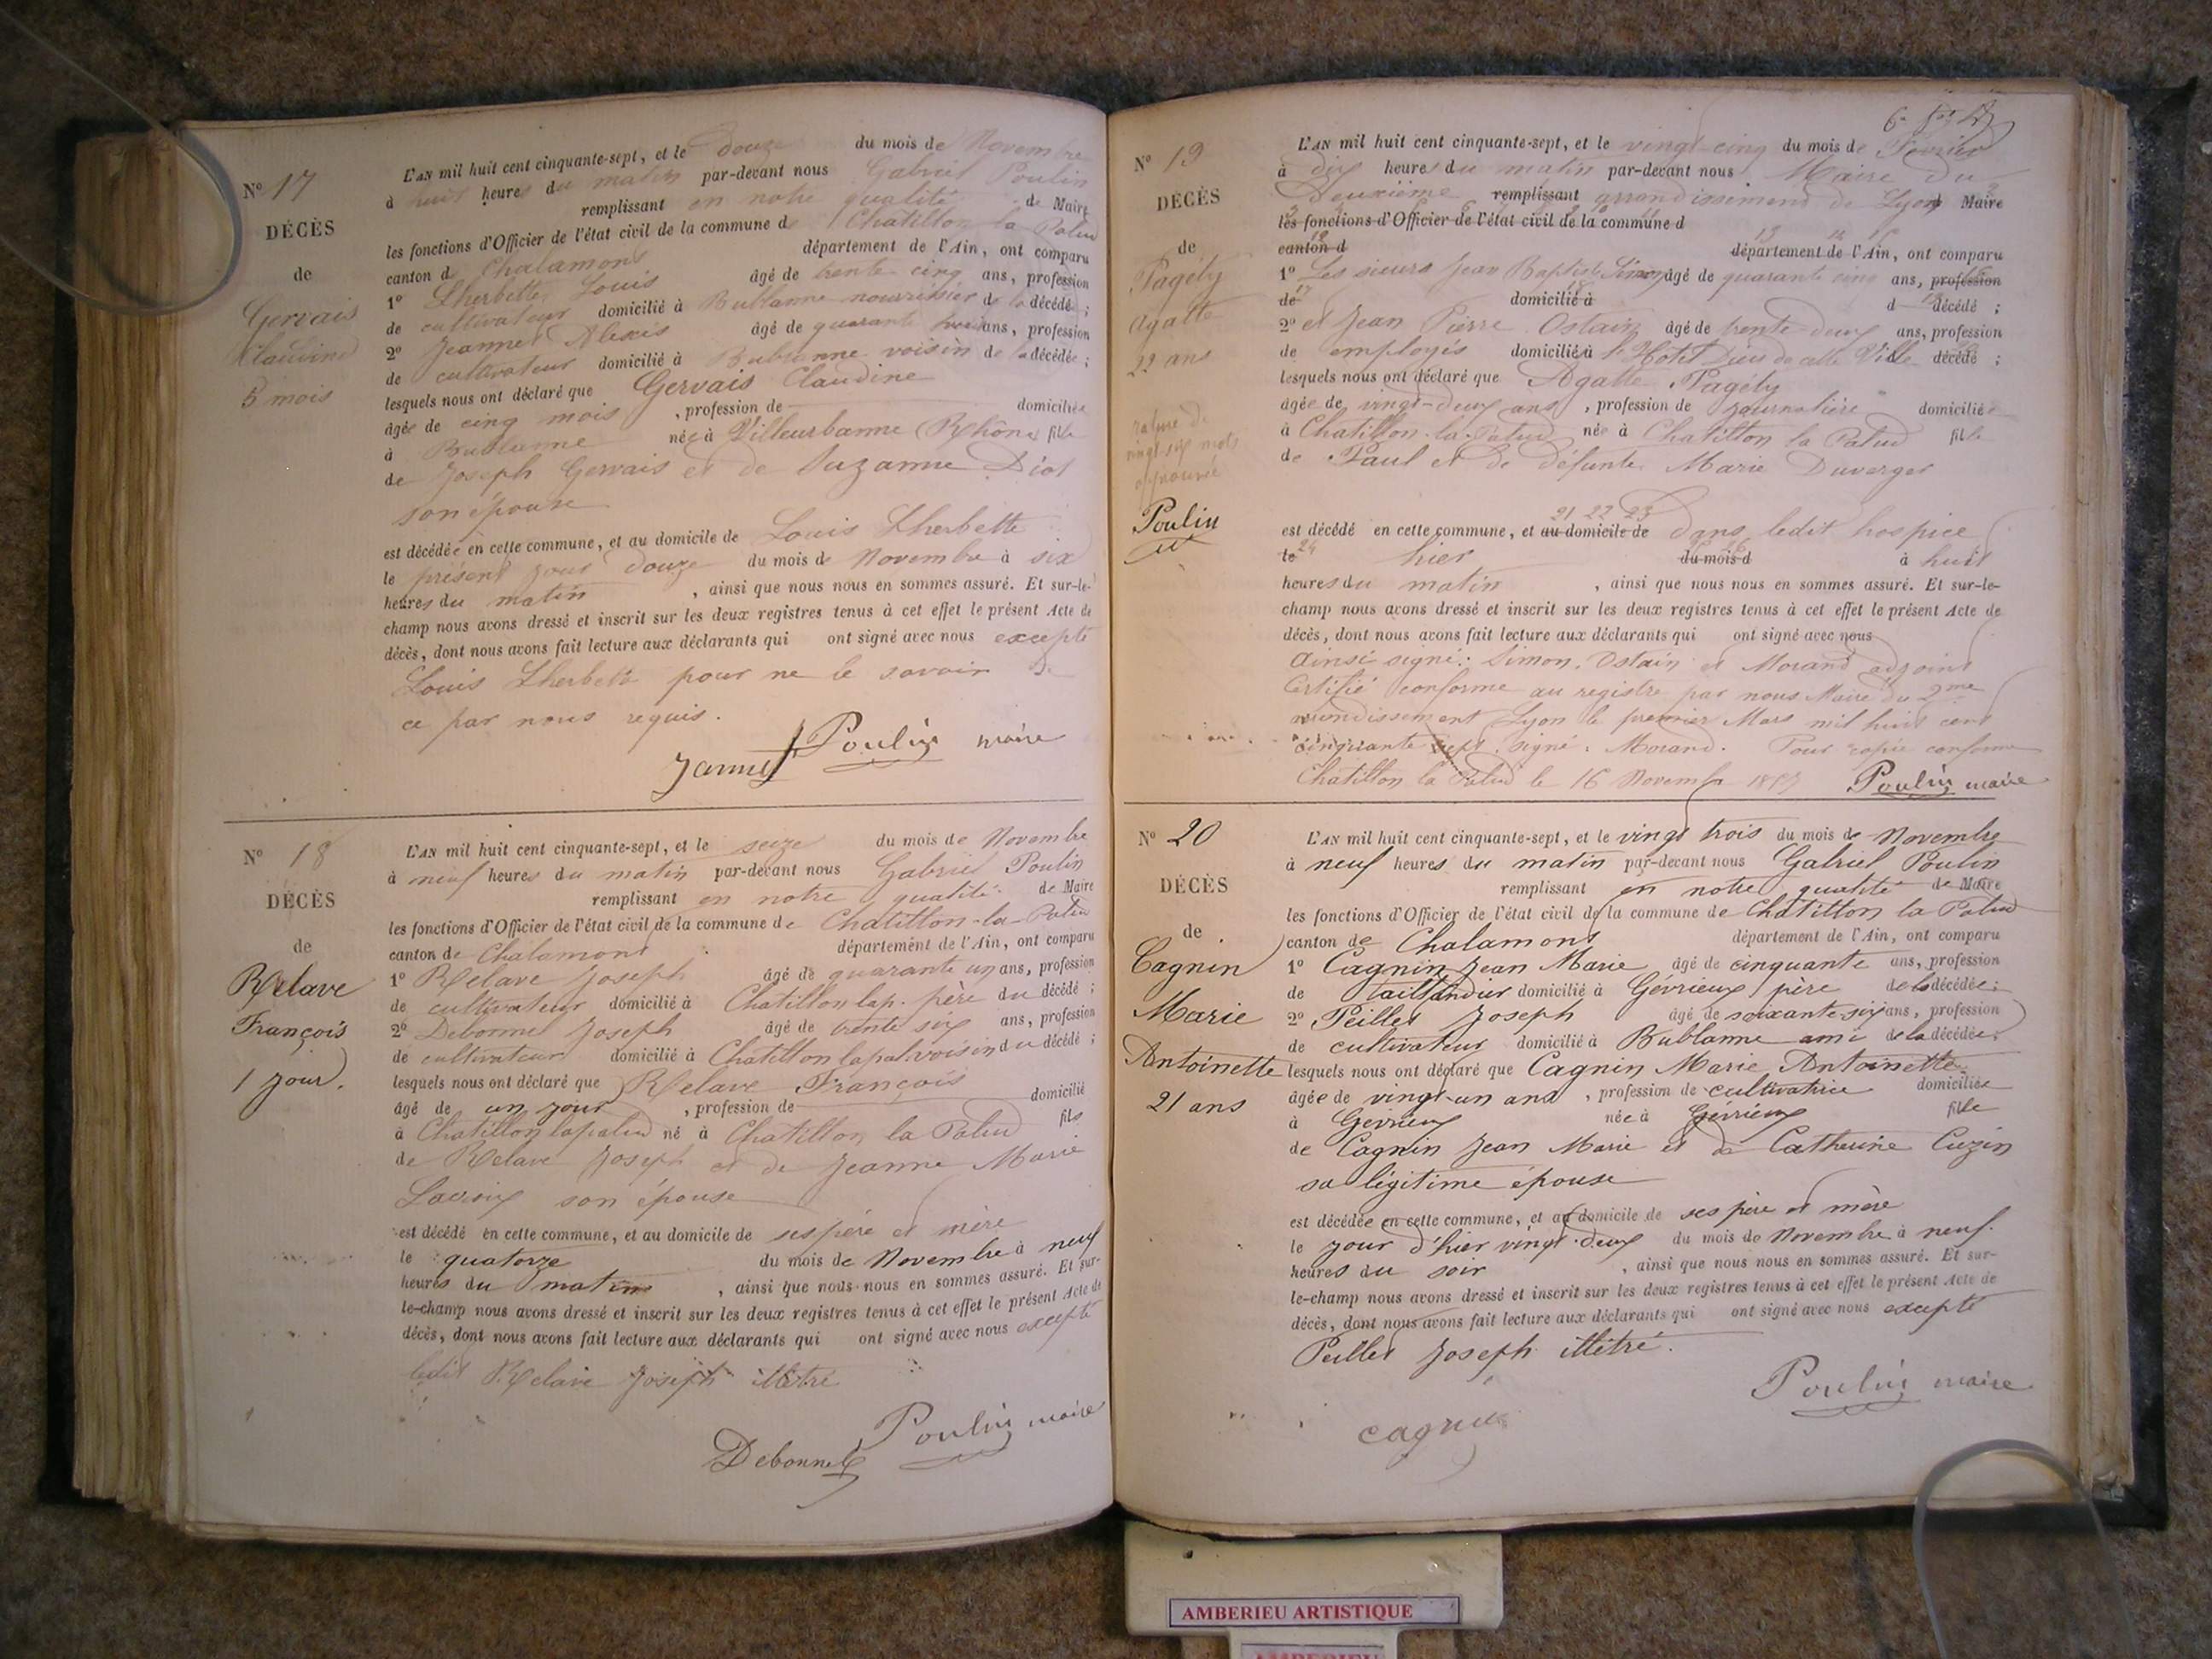 N° 17
DÉCÈS
de
Gervais
Claudine
5 mois
L'AN mil huit cent cinquante-sept, et le douze du mois de Novembre
à huit heures du matin par-devant nous Gabriel Poulin
remplissant en notre qualité de Maire
les fonctions d'Officier de l'état civil de la commune d Chatillon la Palud
canton de Chalamont département de l'Ain, ont comparu
1° Lherbette Louis âgé de trente cinq ans, profession
de cultivateur domicilié à Bublanne nourricier de la décédée ;
2° Jeannet Alexis âgé de quarante trois ans, profession
de cultivateur domicilié à Bublanne voisin de la décédée ;
lesquels nous ont déclaré que Gervais Claudine
âgée de cinq mois , profession de domiciliée
à Bublanne née à Villeurbanne (Rhône) fille
de Joseph Gervais et de Suzanne Diot
son épouse
est décédée en cette commune, et au domicile de Louis Lherbette
le présent jour douze du mois de Novembre à six
heures du matin , ainsi que nous nous en sommes assuré. Et sur-le-
champ nous avons dressé et inscrit sur les deux registres tenus à cet effet le présent Acte de
décès, dont nous avons fait lecture aux déclarants qui ont signé avec nous excepté
Louis Lherbette pour ne le savoir de
ce par nous requis.
Poulin maire
N° 18
DÉCÈS
de
Relave
François
1 jour.
L'AN mil huit cent cinquante-sept, et le seize du mois de Novembre
à neuf heures du matin par-devant nous Gabriel Poulin
remplissant en notre qualité de Maire
les fonctions d'Officier de l'état civil de la commune de Chatillon-la-Palud
canton de Chalamont département de l'Ain, ont comparu
1° Relave Joseph âgé de quarante un ans, profession
de cultivateur domicilié à Chatillon lap. père du décédé ;
2° Debonnet Joseph âgé de trente six ans, profession
de cultivateur domicilié à Chatillon lapal. voisin du décédé ;
lesquels nous ont déclaré que Relave François
âgé de un jour , profession de domicilié
à Chatillon lapalud né à Chatillon la Palud fils
de Relave Joseph et de Jeanne Marie
son épouse
est décédé en cette commune, et au domicile de ses père et mère
le quatorze du mois de Novembre à neuf
heures du matin , ainsi que nous nous en sommes assuré. Et sur-
le-champ nous avons dressé et inscrit sur les deux registres tenus à cet effet le présent Acte de
décès, dont nous avons fait lecture aux déclarants qui ont signé avec nous excepté
ledit Relave Joseph illétré
Poulin maire
Debonnet
N° 19
DÉCÈS
de
Pagély
Agatte
22 ans
rature de
vingt-six mots
approuvée
Poulin
L'AN mil huit cent cinquante-sept, et le vingt-cinq du mois de Février
à dix heures du matin par-devant nous Maire du
Deuxième remplissant arrondissement de Lyon Maire
les fonctions d'Officier de l'état civil de la commune d
canton d département de l'Ain, ont comparu
1° Les sieurs Jean Baptiste Simon âgé de quarante cinq ans, profession
de domicilié à d décédé ;
2° et Jean Pierre Ostain âgé de trente-deux ans, profession
de employés domiciliés à l'Hôtel Dieu de cette Ville décédé ;
lesquels nous ont déclaré que Agatte Pagély
âgée de vingt-deux ans , profession de journalière domiciliée
à Chatillon-la-Palud née à Chatillon la Palud fille
de Paul et de défunte Marie Duverger
est décédé en cette commune, et au domicile de dans ledit hospice
le hier du mois d à huit
heures du matin , ainsi que nous nous en sommes assuré. Et sur-le-
champ nous avons dressé et inscrit sur les deux registres tenus à cet effet le présent Acte de
décès, dont nous avons fait lecture aux déclarants qui ont signé avec nous
Ainsi signé : Simon, Ostain et Morand adjoint
Certifié conforme au registre par nous Maire du 2me
arrondissement Lyon le premier Mars mil huit cent
cinquante sept. signé : Morand. Pour copie conforme
Chatillon la Palud le 16 Novembre 1857 Poulin maire
N° 20
DÉCÈS
de
Cagnin
Marie
Antoinette
21 ans
L'AN mil huit cent cinquante-sept, et le vingt trois du mois de Novembre
à neuf heures du matin par-devant nous Gabriel Poulin
remplissant en notre qualité de Maire
les fonctions d'Officier de l'état civil de la commune de Chatillon la Palud
canton de Chalamont département de l'Ain, ont comparu
1° Cagnin Jean Marie âgé de cinquante ans, profession
de taillandier domicilié à Gévrieux père de la décédée ;
2° Peillet Joseph âgé de soixante-six ans, profession
de cultivateur domicilié à Bublanne ami de la décédée ;
lesquels nous ont déclaré que Cagnin Marie Antoinette
âgée de vingt-un ans , profession de cultivatrice domiciliée
à Gévrieux née à Gévrieux fille
de Cagnin Jean Marie et de Catherine Cuzin
sa légitime épouse
est décédée en cette commune, et au domicile de ses père et mère
le jour d'hier vingt-deux du mois de Novembre à neuf
heures du soir , ainsi que nous nous en sommes assuré. Et sur-
le-champ nous avons dressé et inscrit sur les deux registres tenus à cet effet le présent Acte de
décès, dont nous avons fait lecture aux déclarants qui ont signé avec nous excepté
Peillet Joseph illétré.
Poulin maire
cagnin
AMBERIEU ARTISTIQUE
AMBERIEU